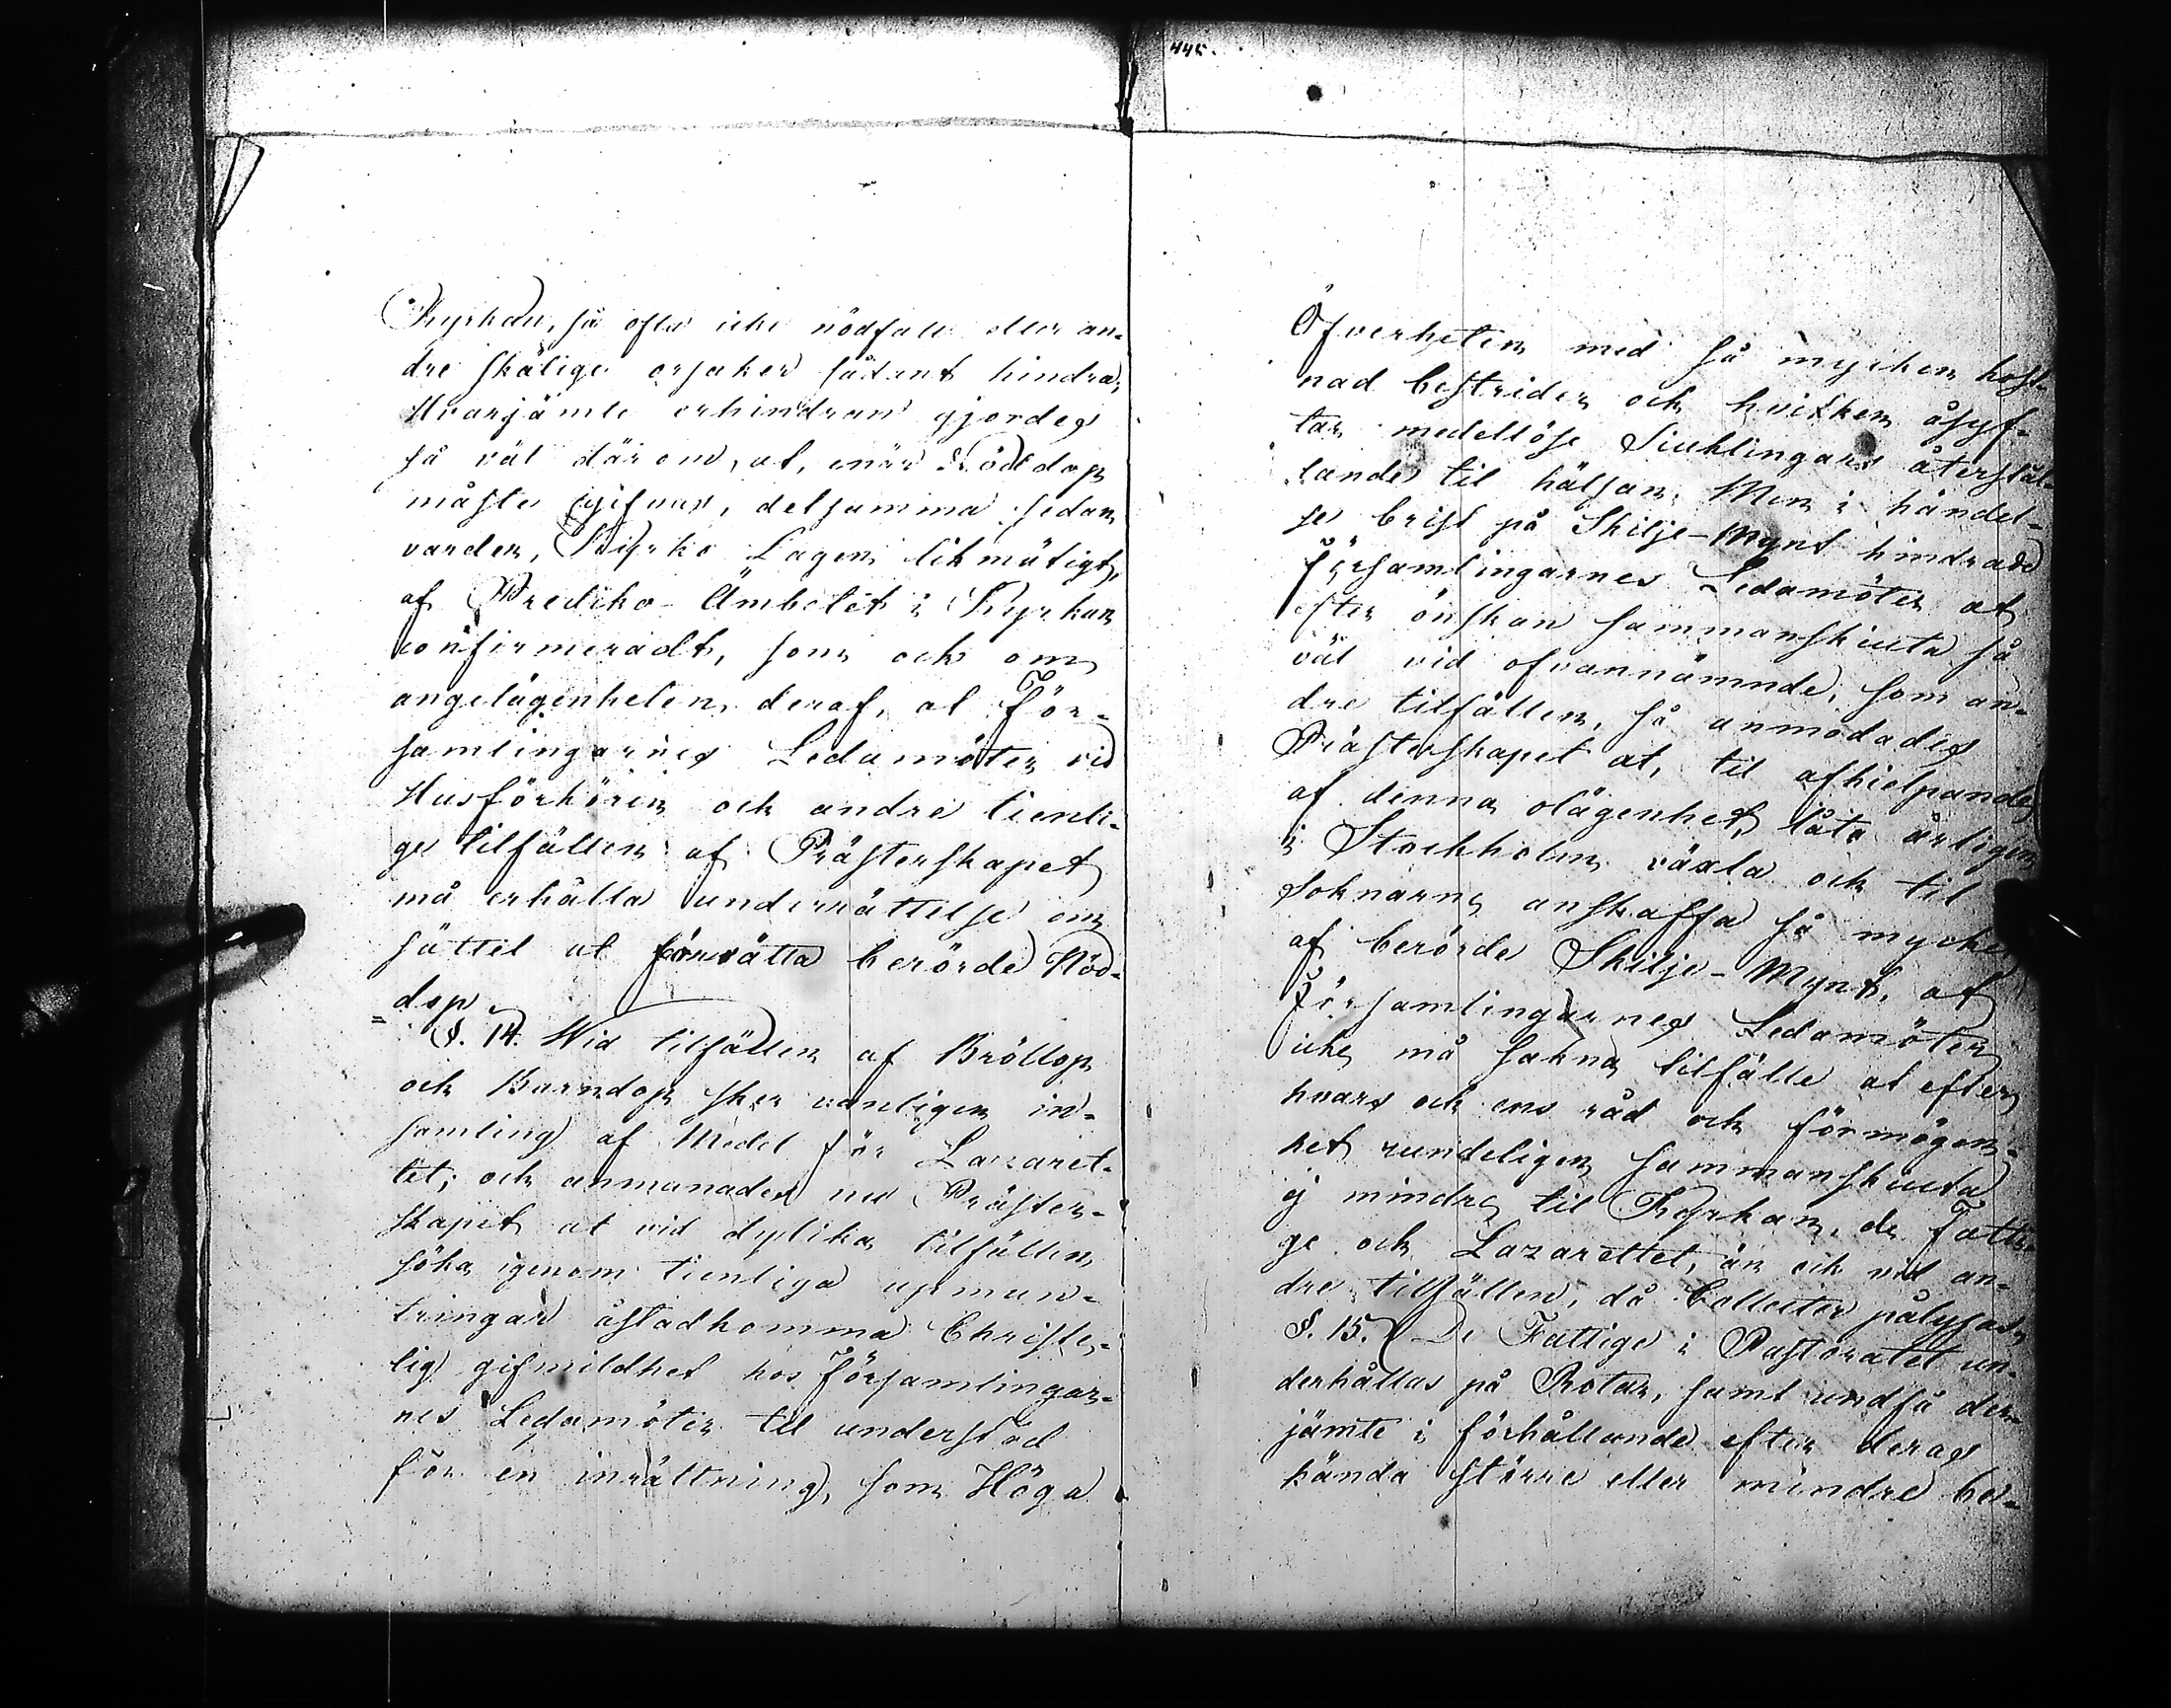 Kyrkan, så ofta icke nödfall eller an-
dre skälige orsaker sådant hindra;
Hvarjämte erhindran gjordes
så väl därom, at, enär Nöddop
måste gifvas, detsamma sedan
varder, Kyrko Lagen likmätigt,
af Prediko-Ämbetet i Kyrkan
confirmeradt, som ock om
angelägenheten deraf, at För-
samlingarnes Ledamöter vid
Husförhören och andre tienli-
ge tilfällen af Prästerskapet
må erhålla underrättelse om
sättet at förrätta berörde Nöd-
dop.
§. 14. Wid tilfällen af Bröllop
och Barndop sker vanligen in-
samling af Medel för Lazaret-
tet; och anmanades nu Präster-
skapet at vid dylika tilfällen
söka igenom tienliga upmun-
tringar åstadkomma Christe-
lig gifmildhet hos Församlingar-
nes Ledamöter til understöd
för en inrättning, som Höga
445.
Öfverheten med så mycken kost-
nad bestrider och hvilken åsyf-
tar medellöse Siuklingars återstäl-
lande til hälsan. Men i händel-
se brist på Skilje-Mynt hindrade
Församlingarnes Ledamöter at
efter önskan sammanskiuta så
väl vid ofvannämnde, som an-
dre tilfällen, så anmodades
Prästerskapet at, til afhielpande
af denna olägenhet, låta årligen
i Stockholm växla och til
Soknarna anskaffa så mycket
af berörde Skilje-Mynt, at
Församlingarnes Ledamöter
icke må sakna tilfälle at efter
hvars och ens råd och förmögen-
het rundeligen sammanskiuta
ej mindre til Kyrkan, de Fatti-
ge och Lazarettet, än ock vid an-
dre tilfällen, då Collecter pålysas.
§. 15. De Fattige i Pastoratet un-
derhållas på Rotar, samt undfå der-
jämte i förhållande efter deras
kända större eller mindre be-